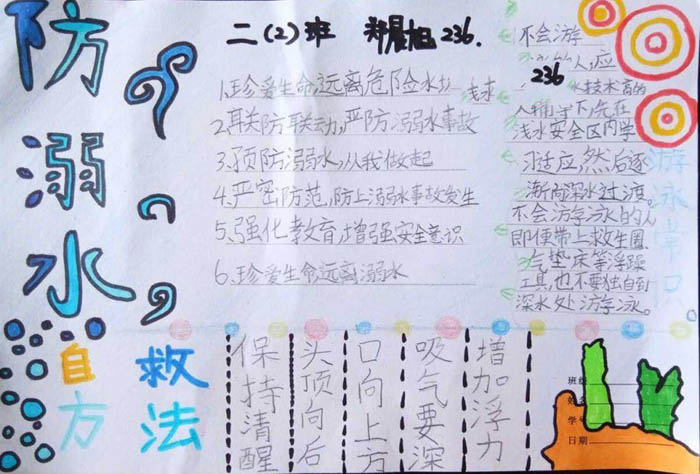 防溺水
二(2)班 郑晨旭 236.
1.珍爱生命,远离危险水域
2.联防联动,严防溺水事故
3.预防溺水,从我做起
4.严密防范,防止溺水事故发生
5、强化教育,增强安全意识
6.珍爱生命远离溺水
不会游
人,应
236
水技术高的
下,先在
浅水安全区内学
习适应,然后逐
渐向深水过渡。
不会游泳的人
即便带上救生圈
气垫床等浮躁
工具,也不要独自到
深水处游泳。
游泳常识
自救
方法
保持清醒
头顶向后
口向上方
吸气要深
增加浮力
班级
姓名
学号
日期